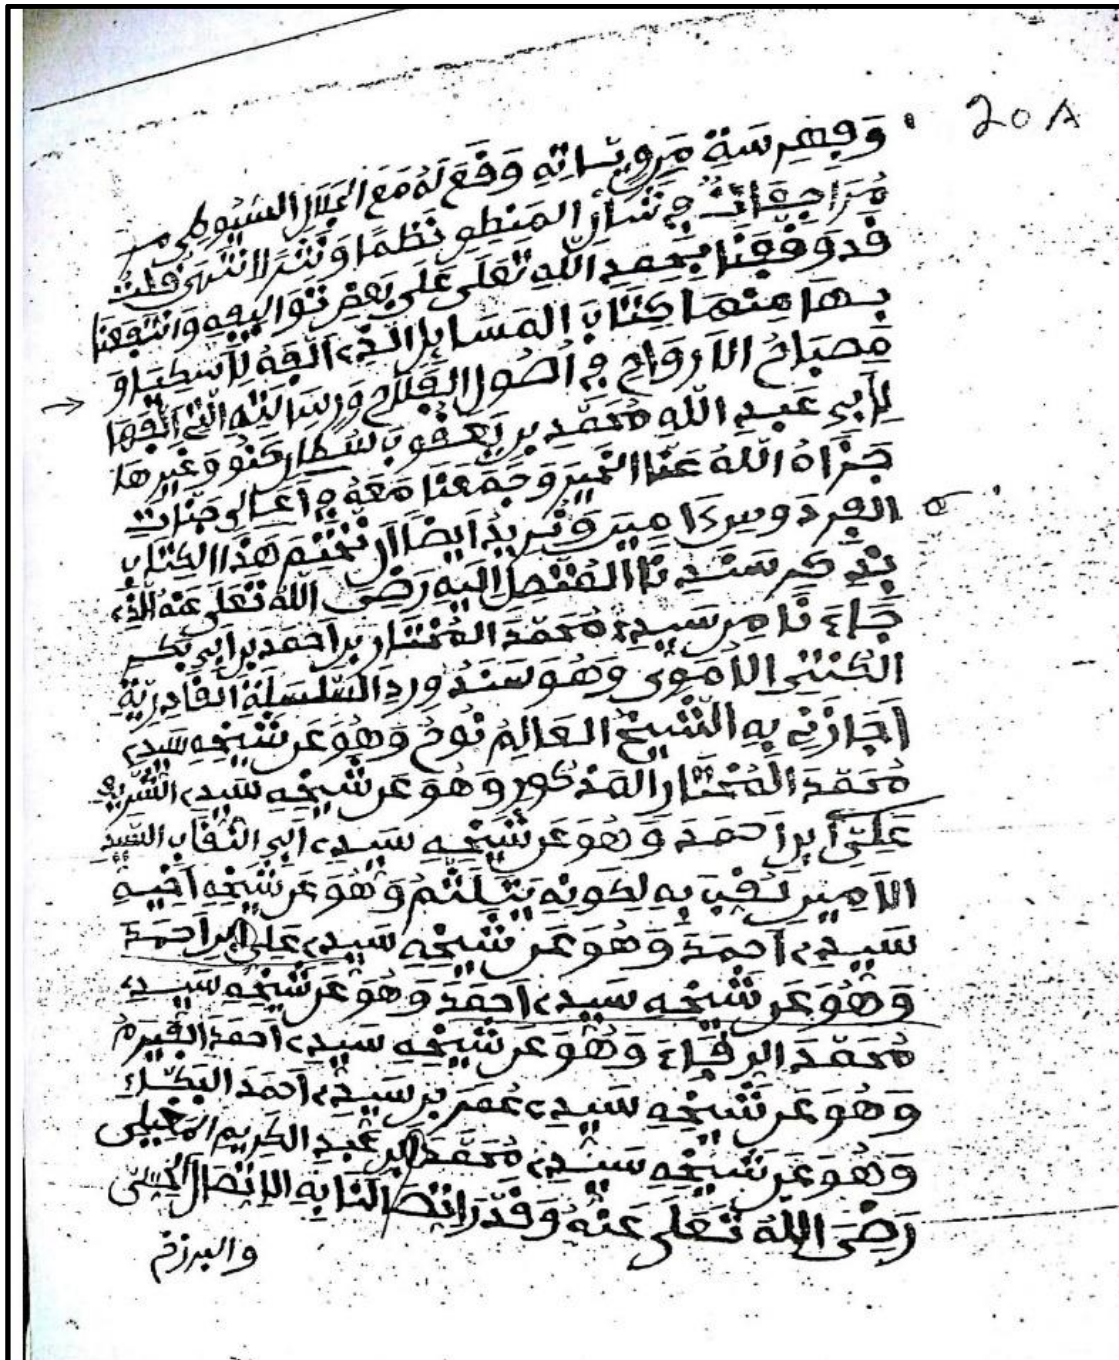 20 A
وَفِهْرِسَةِ مَرْوِيَّاتِهِ وَقَعَ لَهُ مَعَ الجَلَالِ السُّيُوطِي
مُرَاجَعَاتٌ فِي شَأْنِ المَنْطِقِ نَظْمًا وَنَثْرًا انْتَهَى قُلْتُ
قَدْ وَقَفْنَا بِحَمْدِ اللَّهِ تَعَلَى عَلَى بَعْضِ تَوَالِيفِهِ وَانْتَفَعْنَا
بِهَا مِنْهَا كِتَابُ المَسَايِلِ الَّذِي أَلَّفَهُ لِأَسْكِيَا وَ
مِصْبَاحُ الأَرْوَاحِ فِي أُصُولِ الفَلَاحِ وَرِسَالَتِهِ الَّتِي أَلَّفَهَا
لِأَبِي عَبْدِ اللَّهِ مُحَمَّدِ بْنِ يَعْقُوبَ سُلْطَانِ كَنُو وَغَيْرِهَا
جَزَاهُ اللَّهُ عَنَّا الخَيْرَ وَجَمَعَنَا مَعَهُ فِي أَعَالِي جَنَّاتِ
الفِرْدَوْسِ ءَامِينَ وَنُرِيدُ أَيْضًا أَنْ نَخْتِمَ هَذَا الكِتَابَ
بِذِكْرِ سَنَدِنَا المُتَّصِلِ إِلَيْهِ رَضِيَ اللَّهُ تَعَلَى عَنْهُ الَّذِي
جَاءَنَا مِنْ سَيِّدِي مُحَمَّدَ المُخْتَارِ بْنِ أَحْمَدَ بْنِ أَبِي بَكْرٍ
الكُنْتِيِّ الأُمَوِيِّ وَهُوَ سَنَدُ وِرْدِ السِّلْسِلَةِ القَادِرِيَّةِ
أَجَازَنِي بِهِ الشَّيْخُ العَالِمُ نُوحُ وَهُوَ عَنْ شَيْخِهِ سَيِّدِي
مُحَمَّدَ المُخْتَارِ المَذْكُورِ وَهُوَ عَنْ شَيْخِهِ سَيِّدِي الشَّرِيفِ
عَلِيِّ ابْنِ أَحْمَدَ وَهُوَ عَنْ شَيْخِهِ سَيِّدِي أَبِي النَّقَابِ السَّيِّدِ
الأَمِينِ لُقِّبَ بِهِ لِكَوْنِهِ يَتَلَثَّمُ وَهُوَ عَنْ شَيْخِهِ أَخِيهِ
سَيِّدِي أَحْمَدَ وَهُوَ عَنْ شَيْخِهِ سَيِّدِي عَلِي ابْنِ أَحْمَدَ
وَهُوَ عَنْ شَيْخِهِ سَيِّدِي أَحْمَدَ وَهُوَ عَنْ شَيْخِهِ سَيِّدِي
مُحَمَّدَ الرِقَّاءَ وَهُوَ عَنْ شَيْخِهِ سَيِّدِي أَحْمَدَ الفَيْرَمُ
وَهُوَ عَنْ شَيْخِهِ سَيِّدِي عُمَرَ بْنِ سَيِّدِي أَحْمَدَ البَكَّايِ
وَهُوَ عَنْ شَيْخِهِ سَيِّدِي مُحَمَّدَ ابْنِ عَبْدِ الكَرِيمِ المَغِيلِي
رَضِيَ اللَّهُ تَعَلَى عَنْهُ وَقَدْرَ اتِّصَالِنَا بِهِ الاِتِّصَالَ الحِسِّي